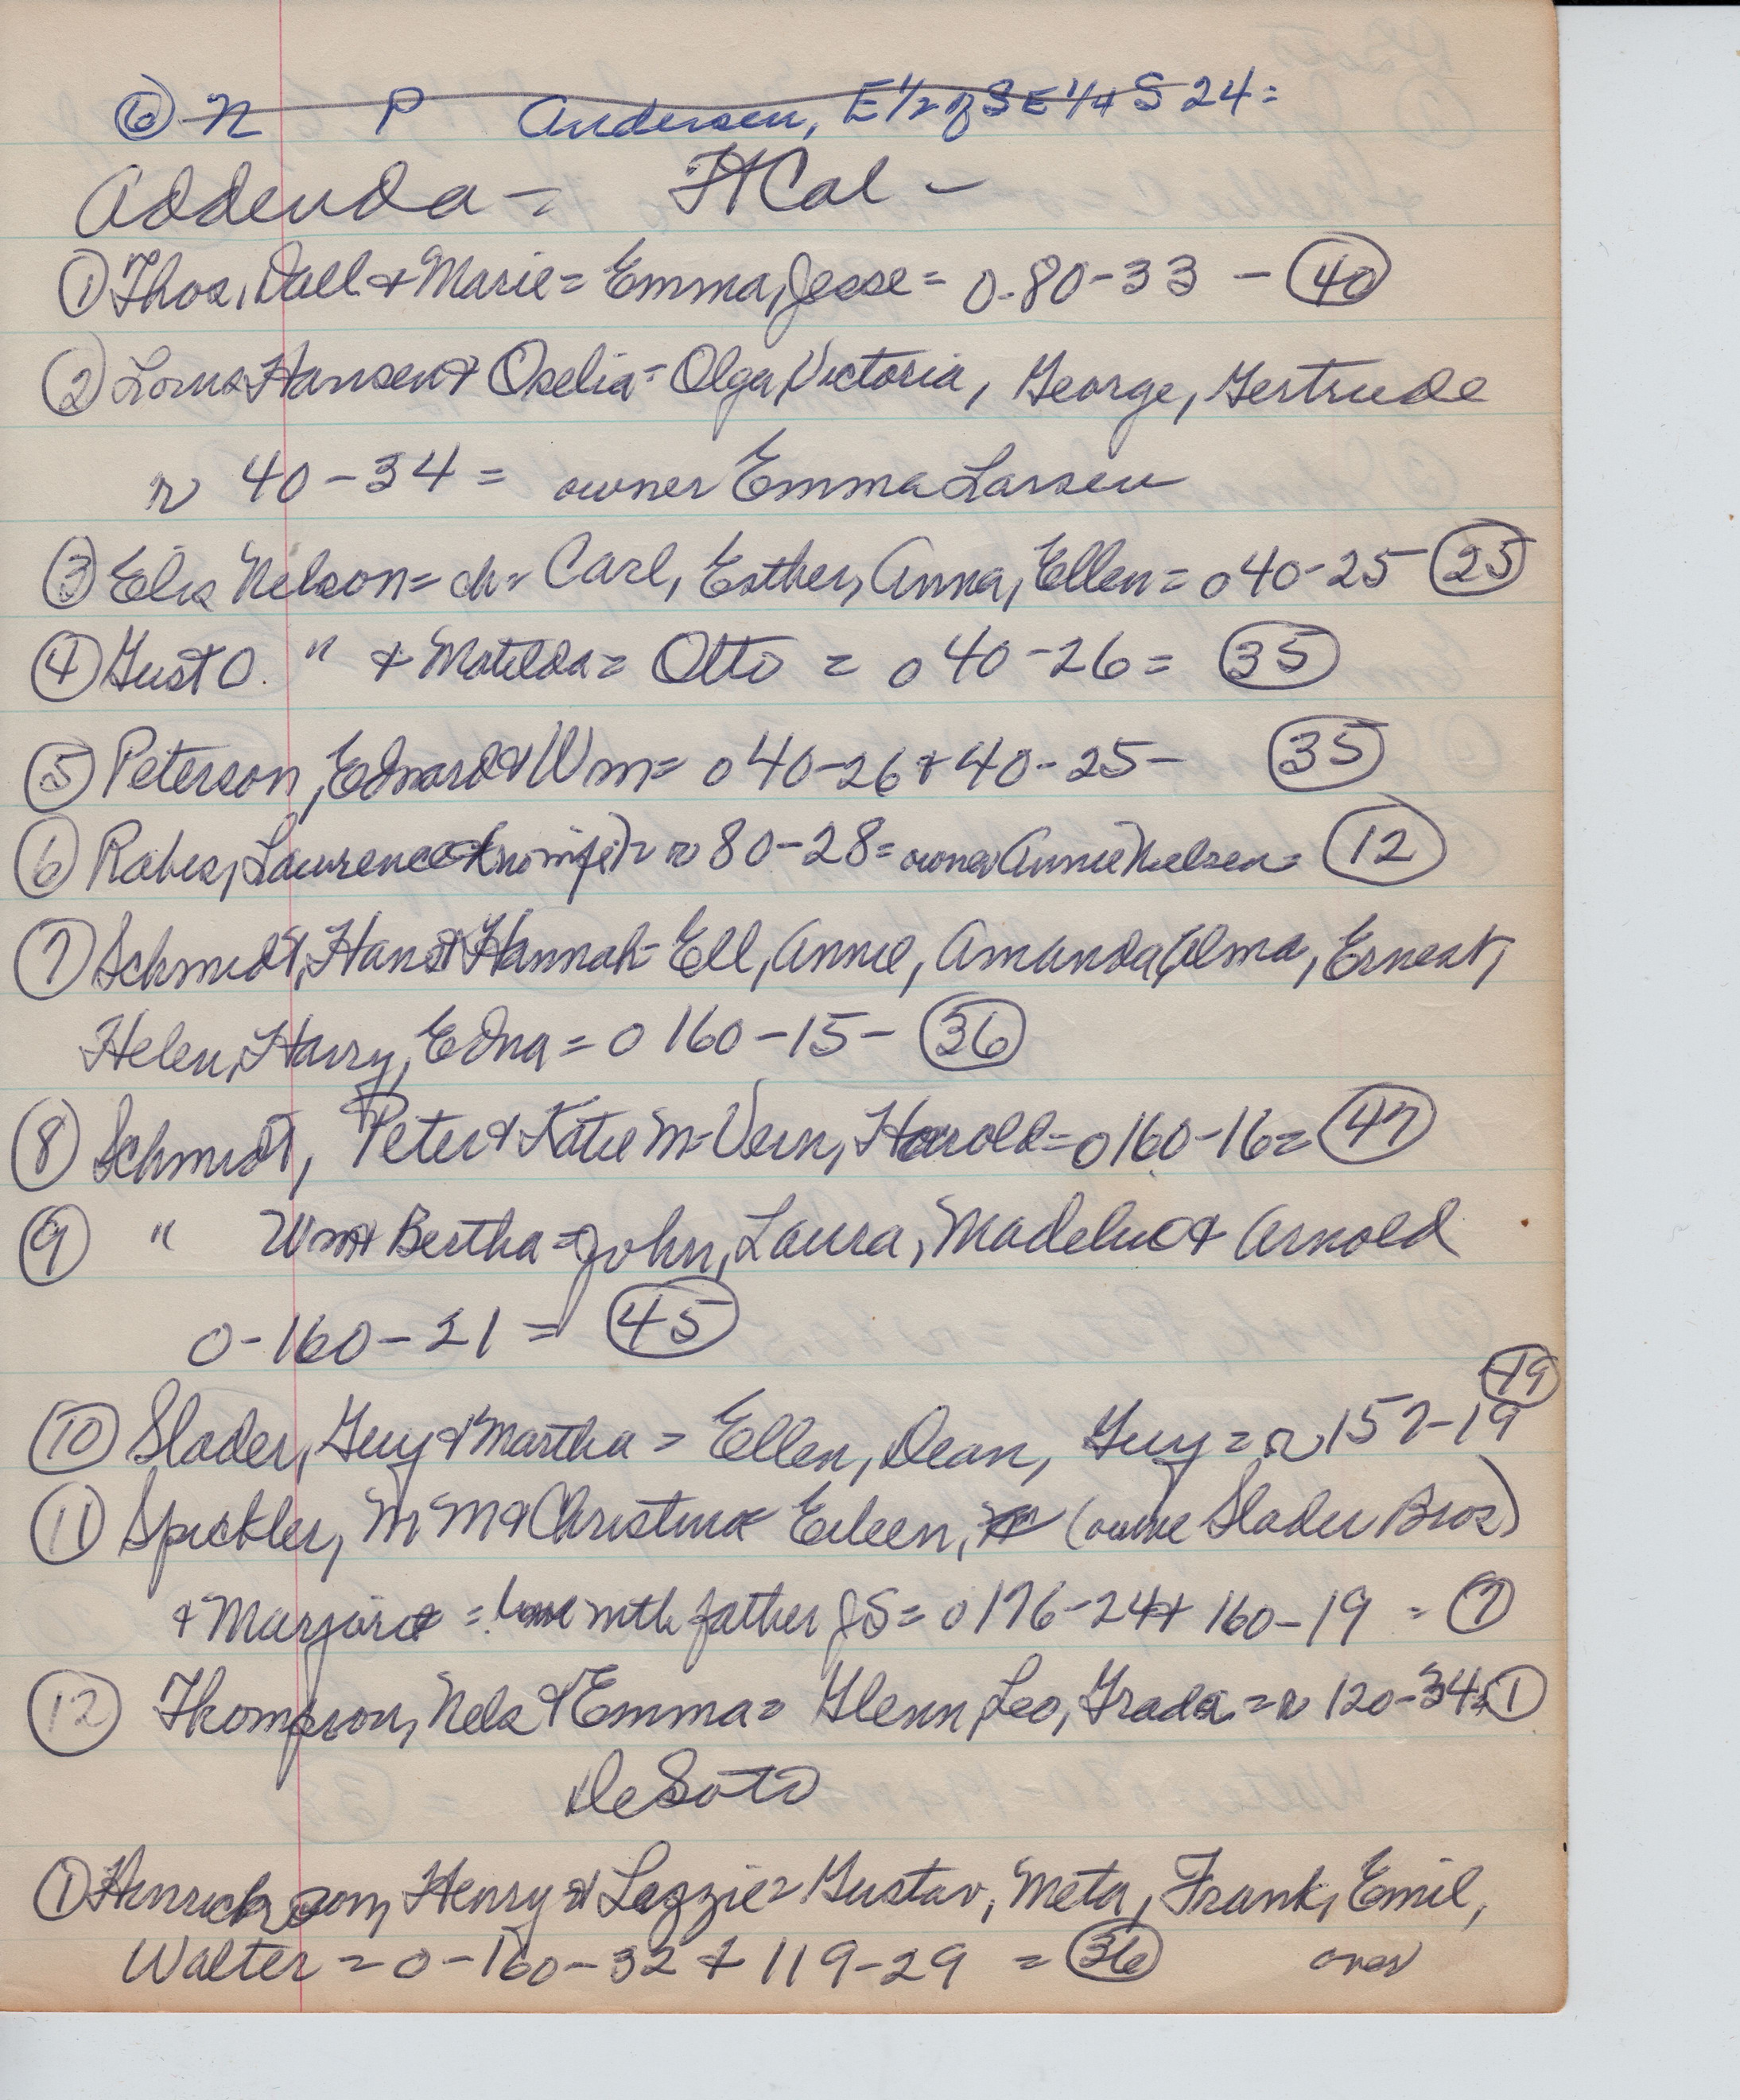 ⑥ N P Andersen, E 1/2 of SE 1/4 S 24 =
Addenda = Ft Cal -
① Thos. Dall & Marie = Emma, Jesse = 0-80-33 - 40
② Hansen & Oselia = Olga, Victoria, George, Gertrude
r 40-34 = owner Emma Larsen
③ Elis Nelson = ch = Carl, Esther, Anna, Ellen = o 40-25 25
④ Gust O. " & Matilda = Otto = o 40-26 = 35
⑤ Peterson, Edward & Wm = o 40-26 & 40-25 - 35
⑥ Lawrence (no wife) = r 80-28 = owner Annie Nielsen = 12
⑦ Schmidt, Hans & Hannah = Ell, Annie, Amanda, Alma, Ernest,
Helen, Harry, Edna = o 160-15 - 36
⑧ Schmidt, Peter & Katie M = Vern, Harold = o 160-16 = 47
⑨ " Wm & Bertha = John, Laura, Madeline & Arnold
0-160-21 = 45
19
⑩ Slader, Guy & Martha = Ellen, Dean, Guy = r 157-19
⑪ Spickler, M M & Christina Eileen, (owne Slader Bros)
& Marjorie = with father JS = o 176-24 & 160-19 = 7
⑫ Thompson, Nels & Emma = Glenn, Leo, Grada = r 120-34 = 1
DeSoto
① Hinrickson, Henry & Lizzie = Gustav, Meta, Frank, Emil,
Walter = 0-160-32 & 119-29 = 36 over